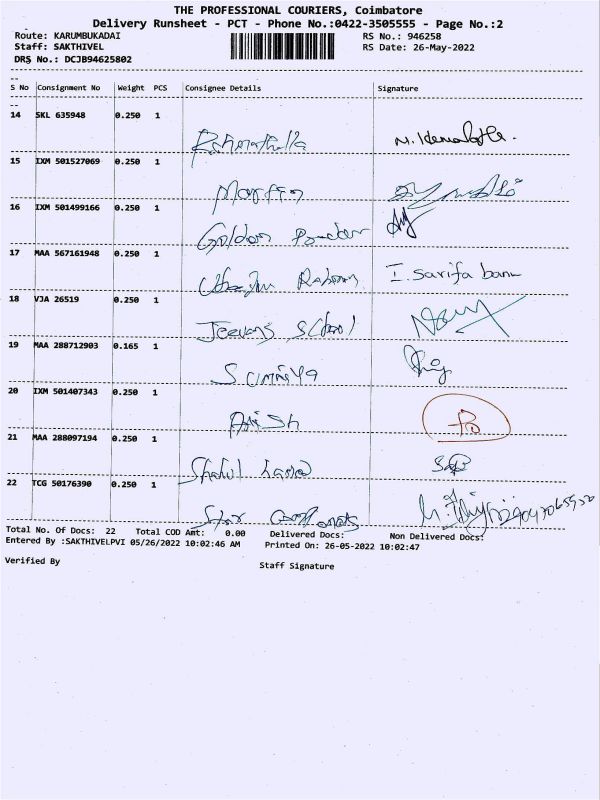 THE PROFESSIONAL COURIERS, Coimbatore
Delivery Runsheet - PCT - Phone No.:0422-3505555 - Page No.:2
Route: KARUMBUKADAI RS No.: 946258
Staff: SAKTHIVEL RS Date: 26-May-2022
DRS No.: DCJB94625802
S No Consignment No Weight PCS Consignee Details Signature
14 SKL 635948 0.250 1
Rahmathulla
15 IXM 501527069 0.250 1
Martin
16 IXM 501499166 0.250 1
Golden
17 MAA 567161948 0.250 1
Rahman I. Sarifa banu
18 VJA 26519 0.250 1
Jeevans School
19 MAA 288712903 0.165 1
Sumaiya
20 IXM 501407343 0.250 1
Anish
21 MAA 288097194 0.250 1
Shahul
22 TCG 50176390 0.250 1
Star
Total No. Of Docs: 22 Total COD Amt: 0.00 Delivered Docs: Non Delivered Docs:
Entered By :SAKTHIVELPVI 05/26/2022 10:02:46 AM Printed On: 26-05-2022 10:02:47
Verified By Staff Signature